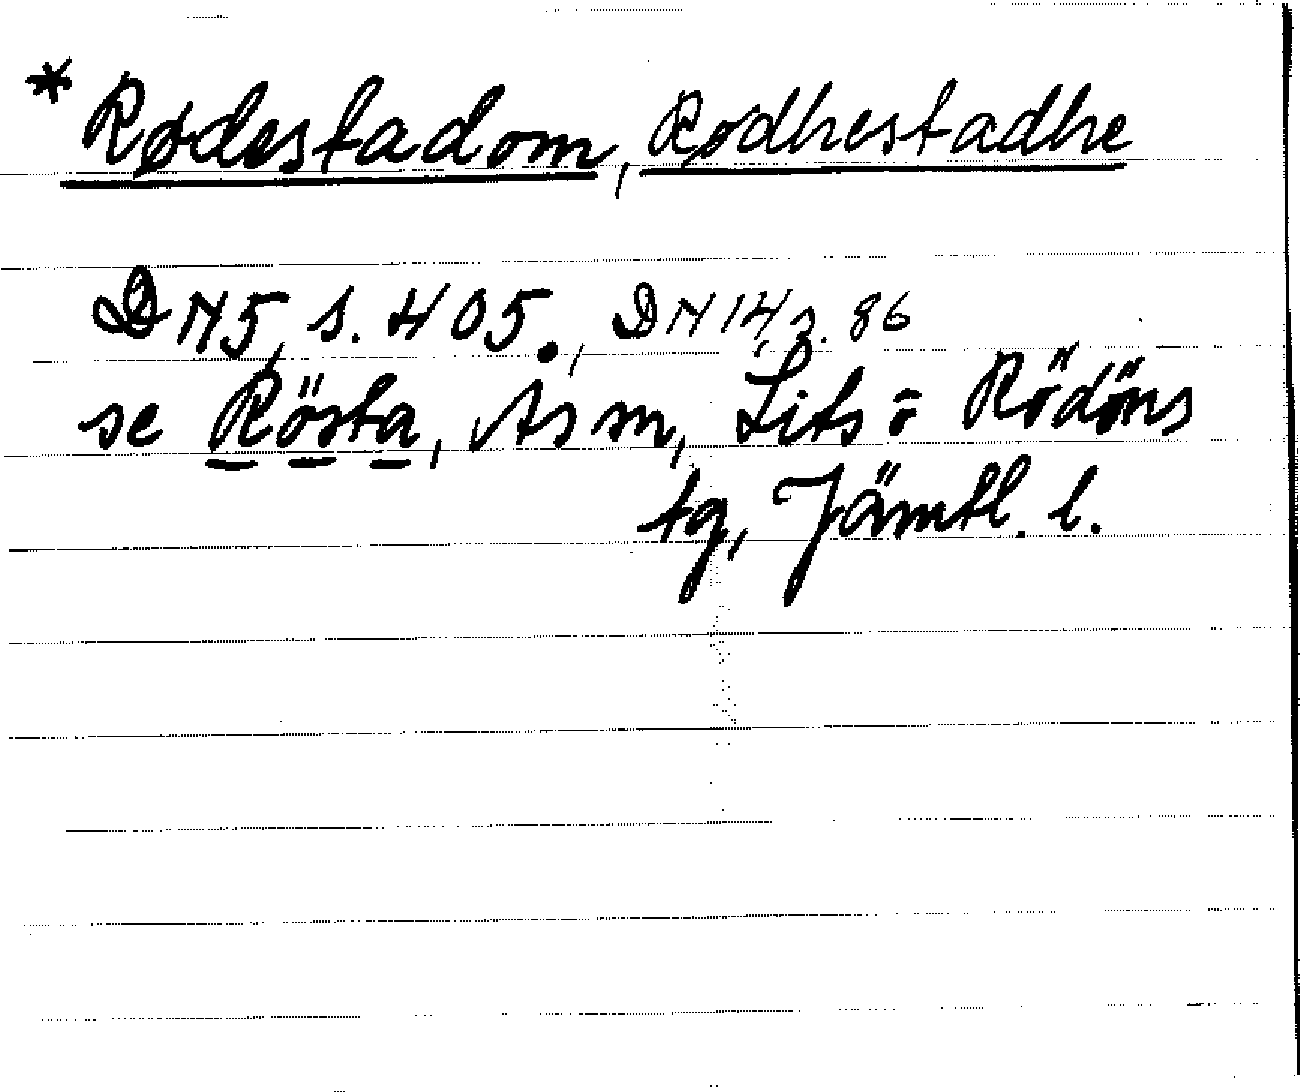 * Rødestadom, Rødhestadhe
DN5, s. 405., DN 14 s. 86
se Rösta, Ås sn, Lits o Rödöns
tg, Jämtl. l.